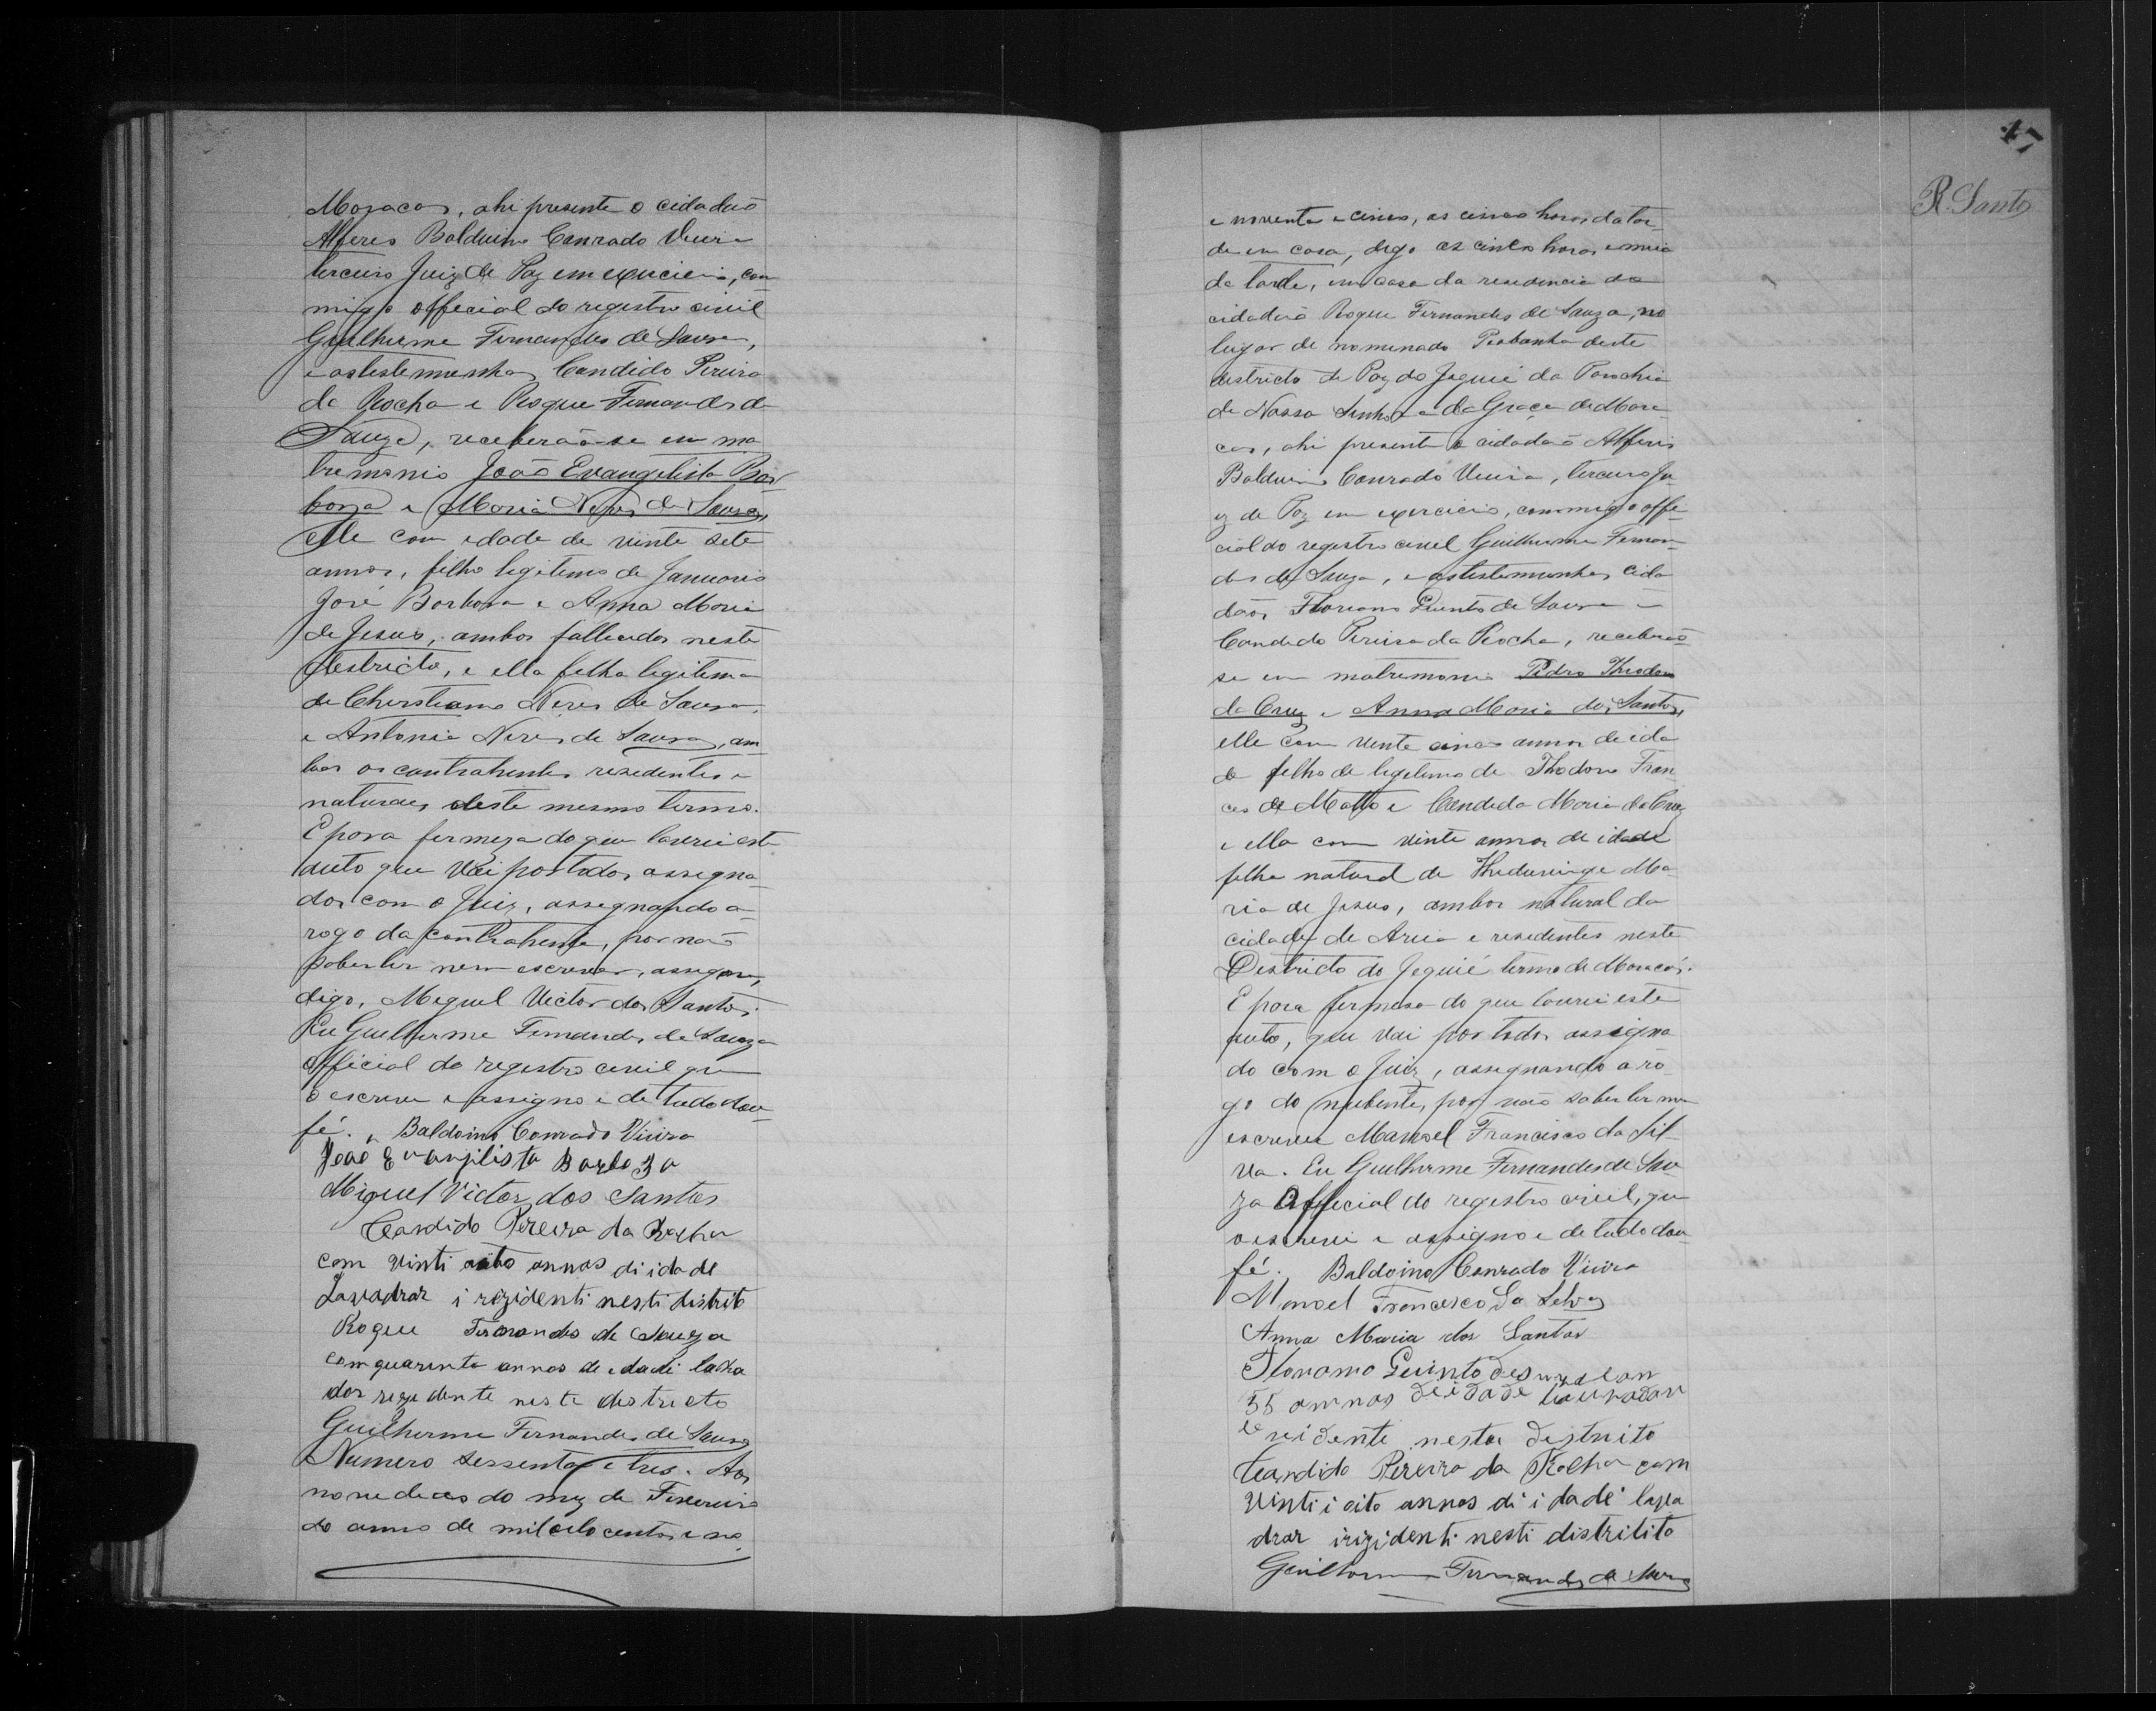 Maracas, ahi presente o cidadaõ
Alferes Balduino Conrado Vieira
terceiro Juiz de Paz em exercicio, com
migo official do registro civil
Guilherme Fernandes de Sousa,
e as testemunhas Candido Pereira
da Rocha e Roque Fernandes de
Sauza, receberaõ-se em ma
tremonio João Evangelista Bar
boza e Maria Neres de Sousa,
elle com edade de vinte sete
annos, filho legitimo de Januario
José Barbosa e Anna Maria
de Jesus, ambos fallecidos neste
destricto, e ella filha legitima
de Cherstiano Neres de Sousa,
e Antonia Neres de Sousa, am
bos os contrahentes resedentes e
naturaes deste mesmo termo.
E para fermeza do que lavrei este
auto que vai por todos assigna
dos com o Juiz, assegnando a
rogo da contrahente, por naõ
saber ler nem escrever, assigna,
digo, Meguel Victor dos Santos.
Eu Guilherme Fernandes de Souza
official do registro cevil que
o escrevi e assigno e de tudo dou
fé. Baldoino Conrado Vieira
João Evanjilista Barboza
Miguel Victor dos Santos
Candido Pereira da Rocha
com vinti oito annos di idade
Lavadrar i rizidenti nesti distrito
Roque Fernandes de Souza
com quarenta annos de edade lavra
dor rezedente neste destricto
Guilherme Fernandes de Sousa
Numero sessenta e tres. Aos
nove dias do mez de Fevereiro
do anno de mil oito centos e no
17
R. Santos
e noventa e cinco, as cinco horas da tar
de em casa, digo as cinco horas e meia
da tarde, em casa da residencia do
cidadaõ Roque Fernandes de Sauza, no
lugar de nomenado Piabanha deste
destricto de Paz do Jequié da Parochia
de Nossa Senhora da Graça de Mara
cas, ahi presente o cidadaõ Alferes
Balduino Conrado Vieira, terceiro Ju
iz de Paz em exercicio, commigo offe
cial do registro cevel Guilherme Fernan
des de Sauza, e as testemunhas cida
dãos Floriano Quinto de Sousa e
Candido Pereira da Rocha, receberaõ
se em matremonio Pedro Theodoro
da Cruz e Anna Maria dos Santos,
elle com vente cinco annos de ida
de filho de legitimo de Thodoro Fran
ces de Matto e Candida Maria da Cruz
e ella com vinte annos de idade
filha natural de Ma
ria de Jesus, ambos natural da
cidade de Areia e resedentes neste
Destricto do Jequié termo de Maracás.
E para fermesa do que lavrei este
auto, que vai por todos assigna
do com o Juiz, assegnando a ro
go do nubente, por naõ saber ler nem
escrever Manoel Francisco da Sil
va. Eu Guilherme Fernandes de Sou
za Official do registro civil, que
o escrevi e assigno e de tudo dou
fé. Baldoino Conrado Vieira
Manoel Francesco da Selva
Anna Maria dos Santos
Floriamo Quinto com
35 annos deidade
rezidente neste destrito
Candido Pereira da Rocha com
vinti i oito annos di idadé lava
drar irizidenti nesti distritito
Guilherme Fernandes de Sousa